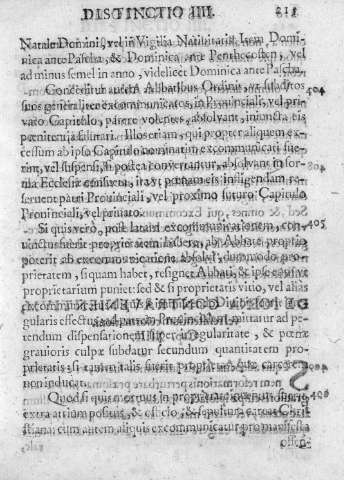 DISTINCTIO IIII. 211
Natale Domini, vel in Vigilia Natiuitatis. Item Domi-
nica ante Pascha, & Dominica ante Penthecosten, vel
ad minus semel in anno, videlicet Dominica ante Pascha.
Conceditur Abbatibus Ordinis, vt subditos 404
suos generaliter excommunicatos, in Prouinciali, vel pri-
uato Capitulo, parere volentes, absoluant, iniuncta eis
pœnitentia salutari. Illos etiam, qui propter aliquem ex-
cessum ab ipso Capitulo nominatim excommunicati fue-
rint, vel suspensi, si postea conuertantur, absoluant in for-
ma Ecclesiæ consueta, ita, vt pœnam eis infligendam re-
seruent patri Prouinciali, vel proximo futuro Capitulo
Prouinciali, vel priuato.
Si quis vero, post latam excommunicationem, con- 405
uinctus fuerit proprietatem habere, ab Abbate proprio
poterit ab excommunicatione absolui, dummodo pro-
prietatem, si quam habet, resignet Abbati, & ipse
proprietarium puniet: sed & si proprietarius vitio, vel alias
gularis effectus, ad patrem mittatur ad pe-
tendum dispensationem super irregularitate, & pœnæ
grauioris culpæ subdatur secundum quantitatem pro-
prietatis: si tamen talis fuerit proprietas,
non inducat.
Quod si quis mortuus in proprietate 406
extra atrium positus, & sepultura careat Chri-
stiana: cum autem aliquis excommunicatur pro manifesta
offen-